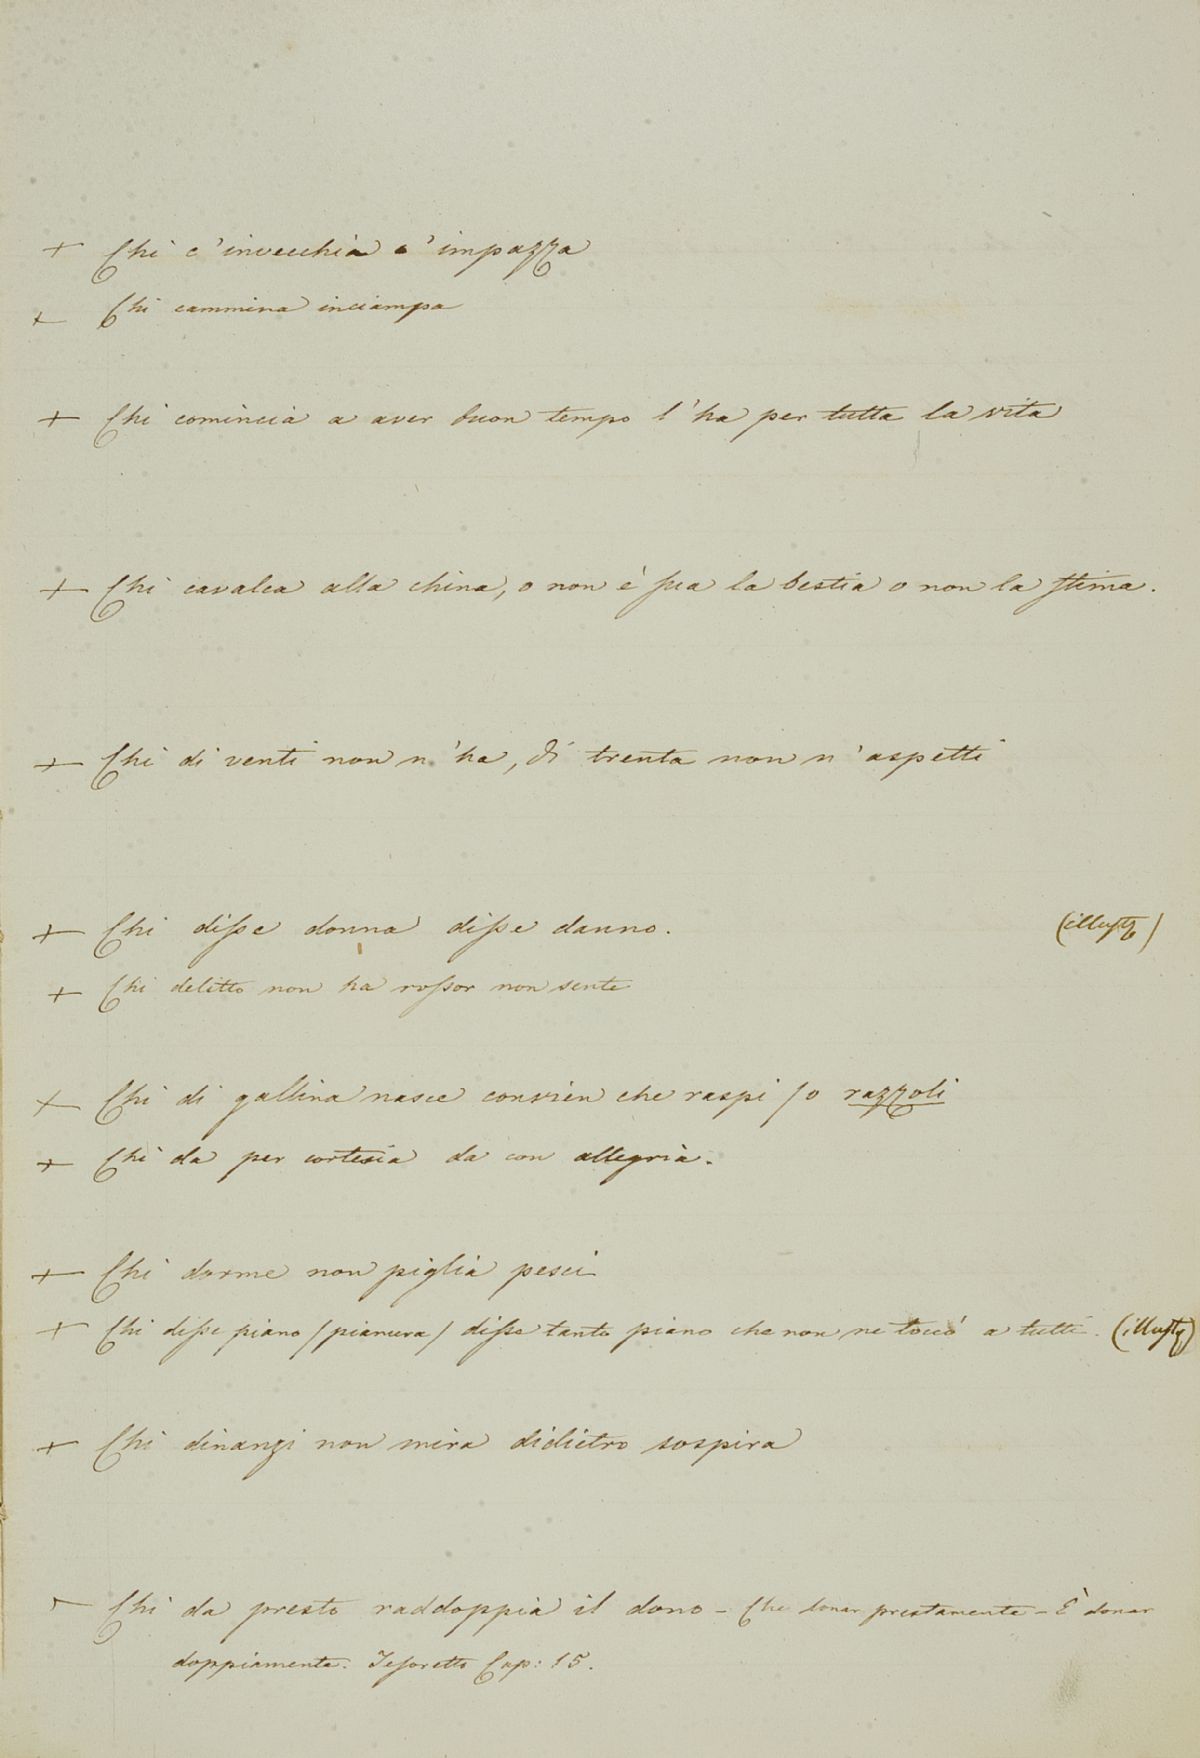 + Chi c'invecchia c'impazza
+ Chi cammina inciampa
+ Chi comincia a aver buon tempo l'ha per tutta la vita
+ Chi cavalca alla china, o non è sua la bestia o non la stima.
+ Chi di venti non n'ha, di trenta non n'aspetti
+ Chi disse donna disse danno.
+ Chi delitto non ha rossor non sente
+ Chi di gallina nasce convien che raspi / o razzoli
+ Chi da per cortesia da con allegria.
+ Chi dorme non piglia pesci
+ Chi disse piano / pianura / disse tanto piano che non ne toccò a tutti.
+ Chi dinanzi non mira didietro sospira
Chi da presto raddoppia il dono – Che donar prestamente – È donar
doppiamente. Tesoretto Cap: 15.